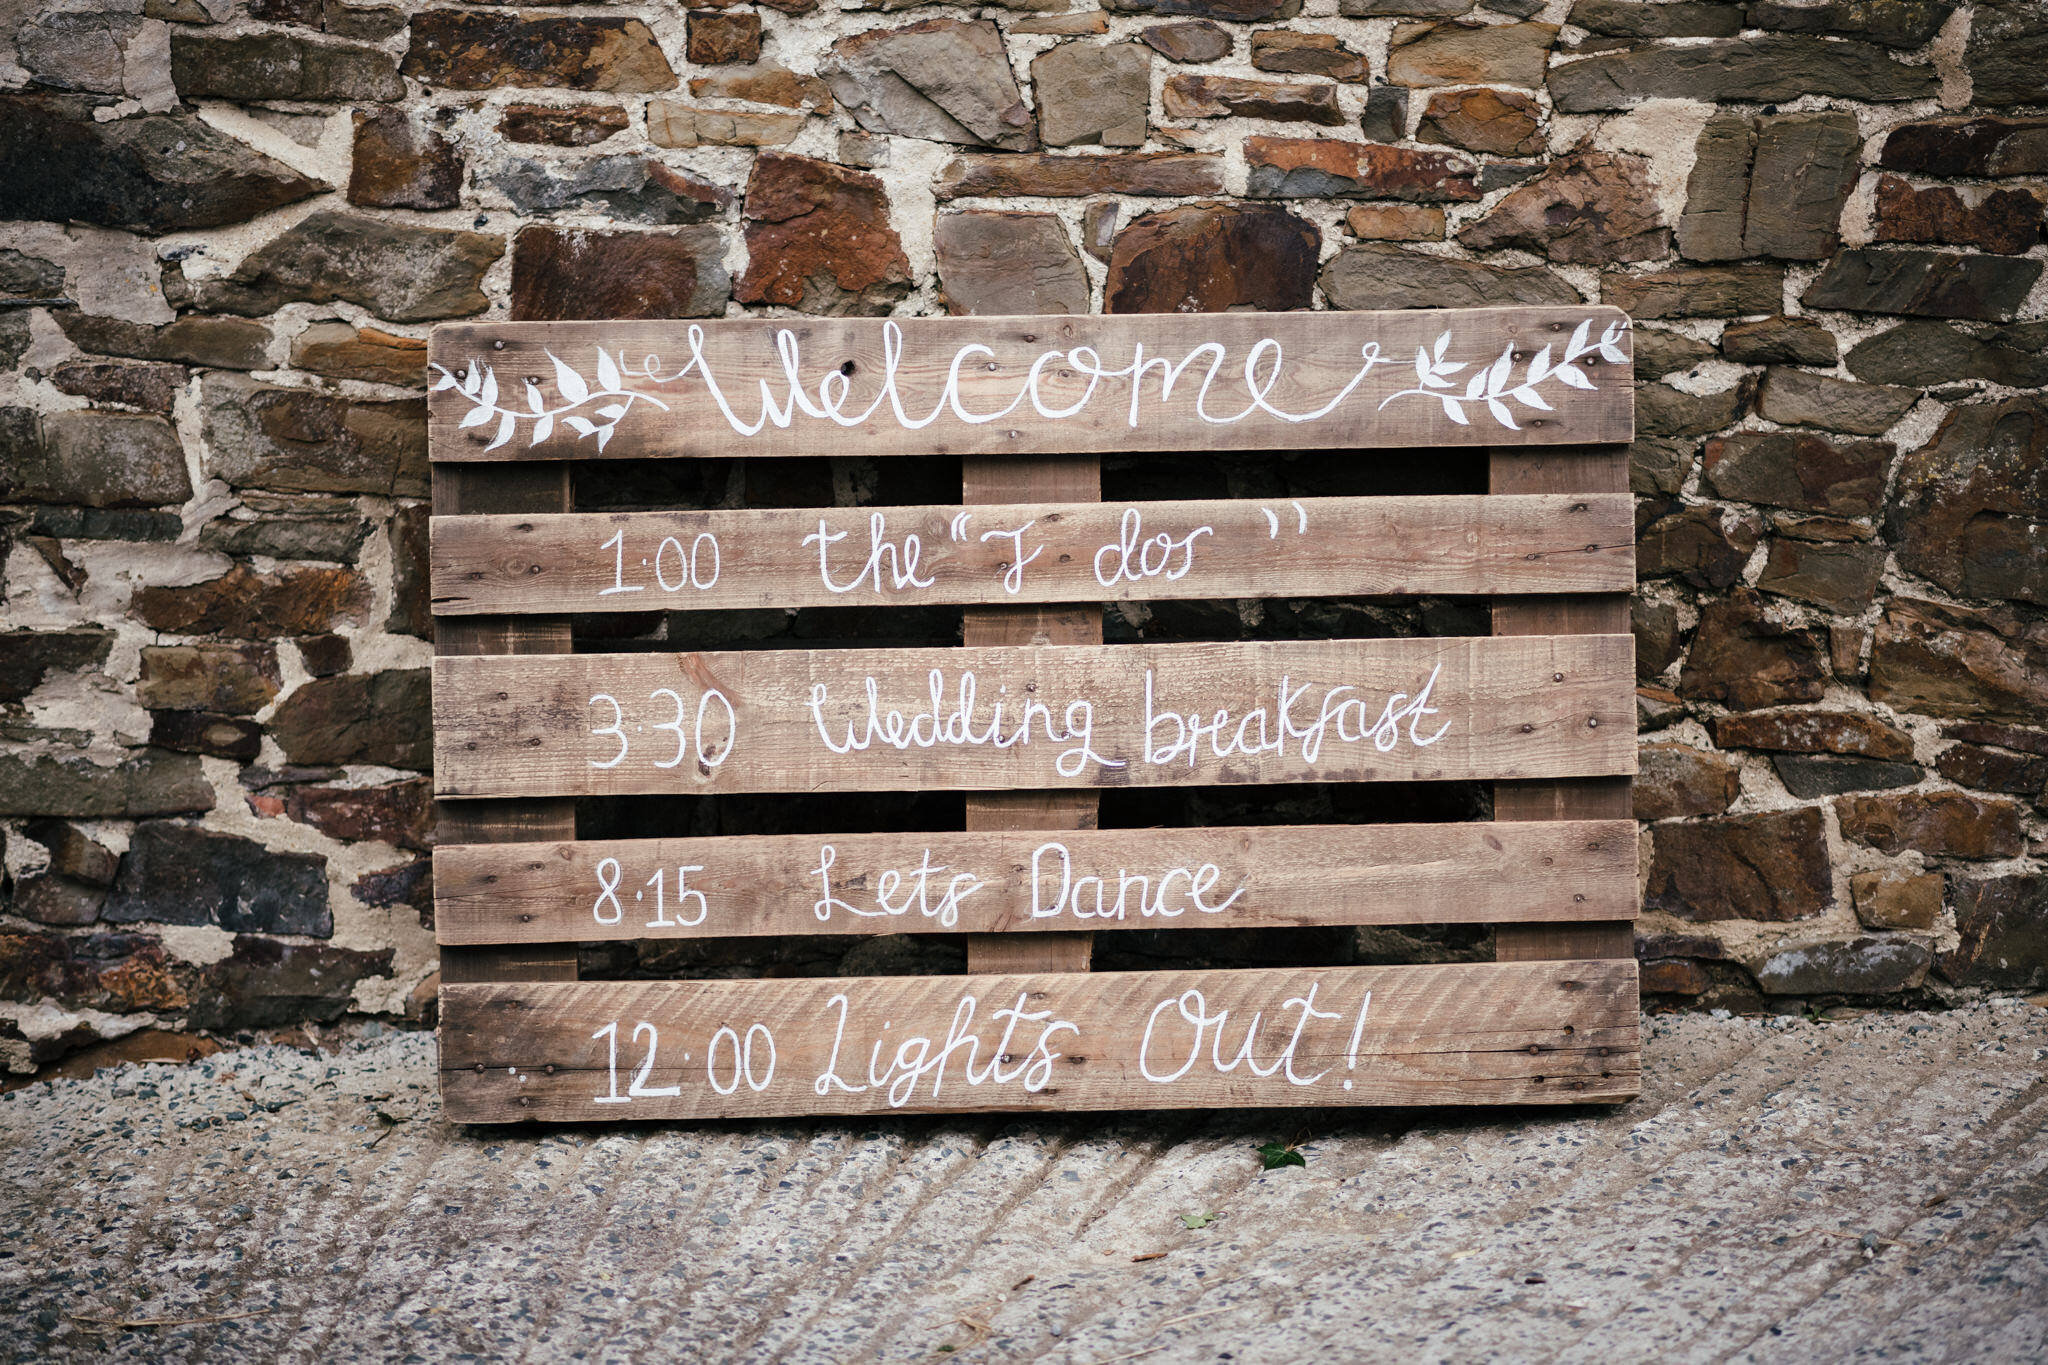 Welcome
1·00 the "I dos"
3·30 Wedding breakfast
8·15 Lets Dance
12·00 Lights Out!